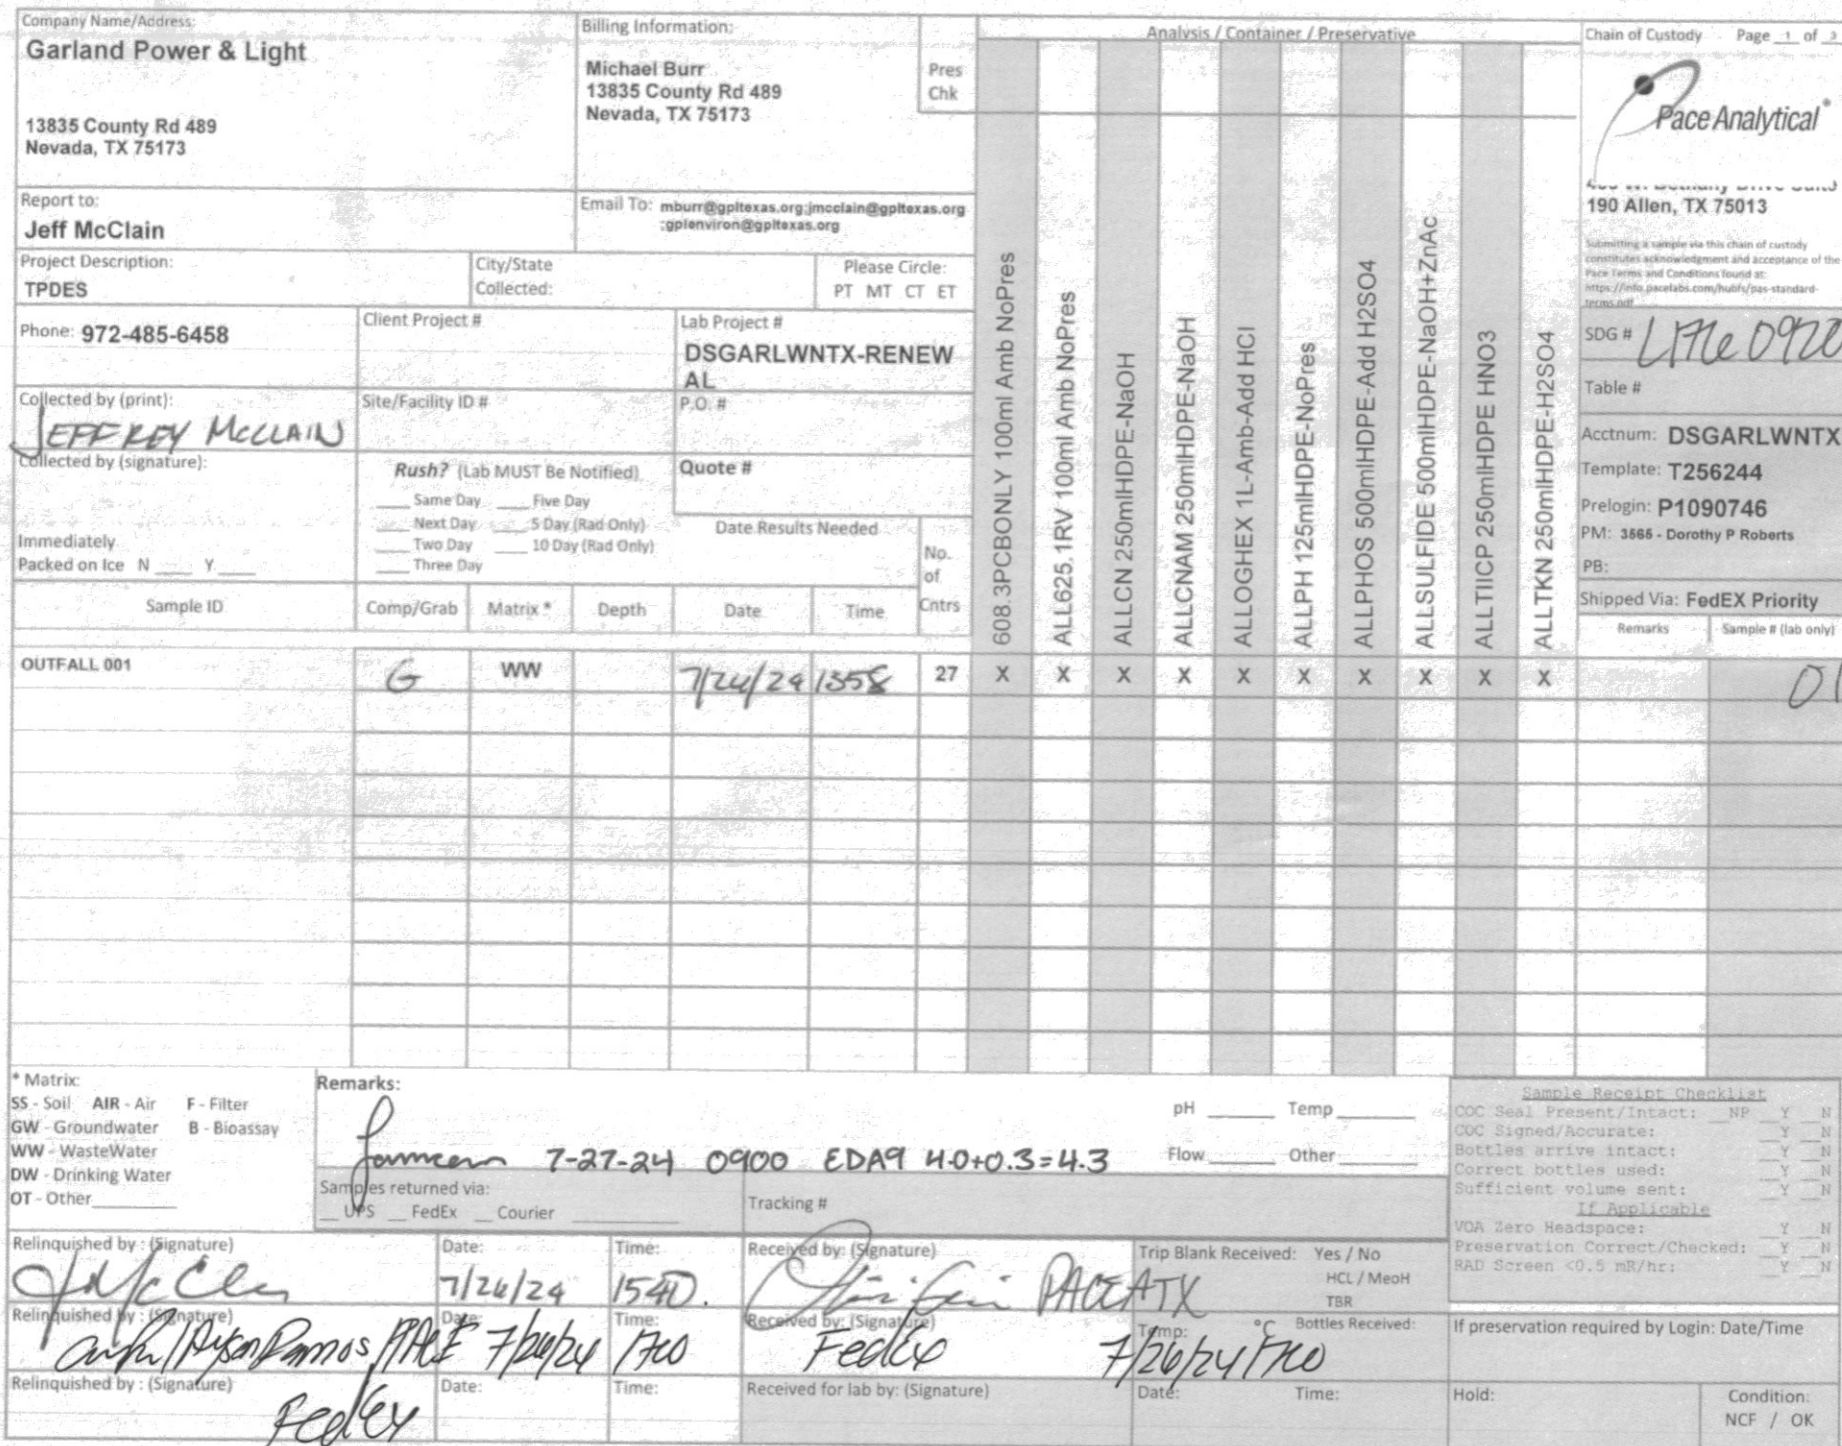 Company Name/Address:
Garland Power & Light
13835 County Rd 489
Nevada, TX 75173
Billing Information:
Michael Burr
13835 County Rd 489
Nevada, TX 75173
Pres
Chk
Analysis / Container / Preservative
Chain of Custody Page 1 of 3
Pace Analytical®
190 Allen, TX 75013
Submitting a sample via this chain of custody
constitutes acknowledgment and acceptance of the
Pace Terms and Conditions found at:
https://info.pacelabs.com/hubfs/pas-standard-
terms.pdf
Report to:
Jeff McClain
Email To: mburr@gpltexas.org;jmcclain@gpltexas.org
;gplenviron@gpltexas.org
Project Description:
TPDES
City/State
Collected:
Please Circle:
PT MT CT ET
Phone: 972-485-6458
Client Project #
Lab Project #
DSGARLWNTX-RENEW
AL
SDG #
Table #
Collected by (print):
JEFFREY McCLAIN
Site/Facility ID #
P.O. #
Acctnum: DSGARLWNTX
Template: T256244
Prelogin: P1090746
PM: 3565 - Dorothy P Roberts
PB:
Shipped Via: FedEX Priority
Collected by (signature):
Rush? (Lab MUST Be Notified)
___ Same Day ___ Five Day
___ Next Day ___ 5 Day (Rad Only)
___ Two Day ___ 10 Day (Rad Only)
___ Three Day
Quote #
Date Results Needed
Immediately
Packed on Ice N ___ Y ___
No.
of
Cntrs
Sample ID Comp/Grab Matrix * Depth Date Time
608.3PCBONLY 100ml Amb NoPres
ALL625.1RV 100ml Amb NoPres
ALLCN 250mlHDPE-NaOH
ALLCNAM 250mlHDPE-NaOH
ALLOGHEX 1L-Amb-Add HCl
ALLPH 125mlHDPE-NoPres
ALLPHOS 500mlHDPE-Add H2SO4
ALLSULFIDE 500mlHDPE-NaOH+ZnAc
ALLTIICP 250mlHDPE HNO3
ALLTKN 250mlHDPE-H2SO4
Remarks Sample # (lab only)
OUTFALL 001 G WW 7/26/24 1358 27 X X X X X X X X X X 01
* Matrix:
SS - Soil AIR - Air F - Filter
GW - Groundwater B - Bioassay
WW - WasteWater
DW - Drinking Water
OT - Other
Remarks:
7-27-24 0900 EDA9 4.0+0.3=4.3
pH ___ Temp ___
Flow ___ Other ___
Samples returned via:
__ UPS __ FedEx __ Courier
Tracking #
Sample Receipt Checklist
COC Seal Present/Intact: __NP __Y __N
COC Signed/Accurate: __Y __N
Bottles arrive intact: __Y __N
Correct bottles used: __Y __N
Sufficient volume sent: __Y __N
If Applicable
VOA Zero Headspace: __Y __N
Preservation Correct/Checked: __Y __N
RAD Screen <0.5 mR/hr: __Y __N
Relinquished by : (Signature) Date: Time: Received by: (Signature)
7/26/24 1540. PACE ATX
Trip Blank Received: Yes / No
HCL / MeoH
TBR
Relinquished by : (Signature) Date: Time: Received by: (Signature)
Ramos/PACE 7/26/24 1700 FedEx 7/26/24 1700
Temp: °C Bottles Received:
If preservation required by Login: Date/Time
Relinquished by : (Signature) Date: Time: Received for lab by: (Signature) Date: Time:
FedEx
Hold:
Condition:
NCF / OK